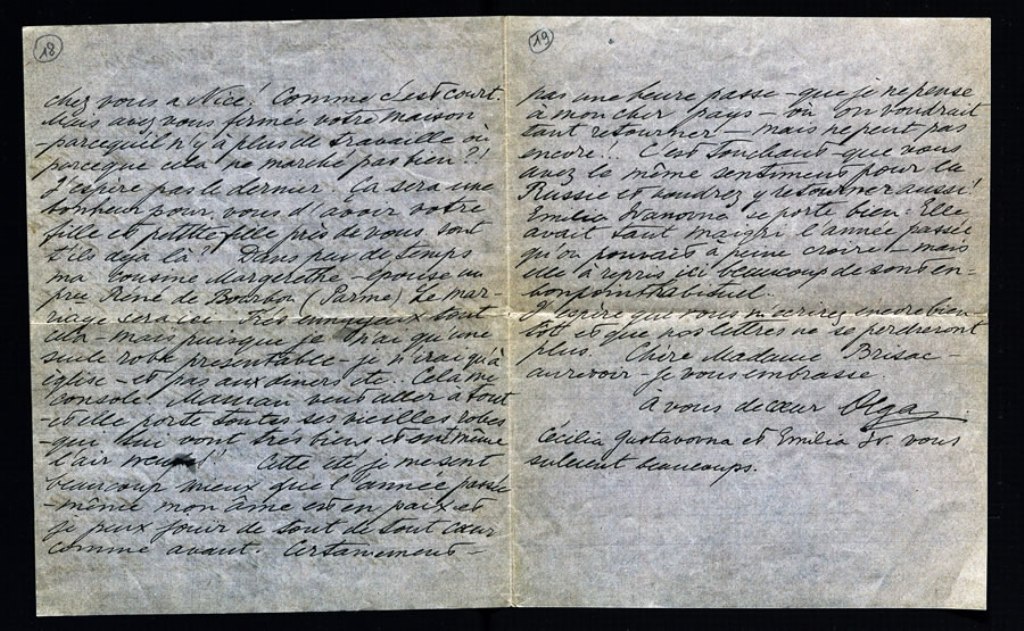 18
chez vous a Nice! Comme c'est court.
Mais avez vous fermée votre maison
-parcequ'il n'y à plus de travaille où
parceque cela ne marche pas bien?!
J'espère pas le dernier. Ça sera une
bonheur pour vous d'avoir votre
fille et petite fille près de vous. Sont
t'ils déjà là? Dans peu de temps
ma cousine Margerethe - épouse un
pce Réné de Bourbon (Parme) Le mar-
riage sera ici. Très ennuyeux tout
cela - mais puisque je n'ai qu'une
seule robe présentable - je n'irai qu'à
église - et pas aux diners etc. Cela me
console. Maman veut aller a tout
- et elle porte toutes ses vieilles robes
- qui lui vont très biens et ont même
l'air neuf!! Cette été je me sent
beaucoup mieux que l'année passée
- même mon âme est en paix et
je peux jouir de tout de tout cœur
comme avant. Certainement -
19
pas une heure passe - que je ne pense
à mon cher pays - où on voudrait
tant retourner - mais ne peut pas
encore!.. C'est touchant - que vous
avez le même sentiment pour la
Russie et voudrez y retourner aussi!
Emilia Ivanovna se porte bien. Elle
avait tant maigri l'année passée
qu'on pouvait à peine croire - mais
elle à repris ici beaucoup de sont en-
bonpoint habituel.
J'espère que vous m'écrirez encore bien
tôt et que nos lettres ne se perdreront
plus. Chère Madame Brisac -
aurevoir - je vous embrasse
a vous de cœur Olga
Cécilia Gustavovna et Emilia Iv. vous
saluent beaucoups.